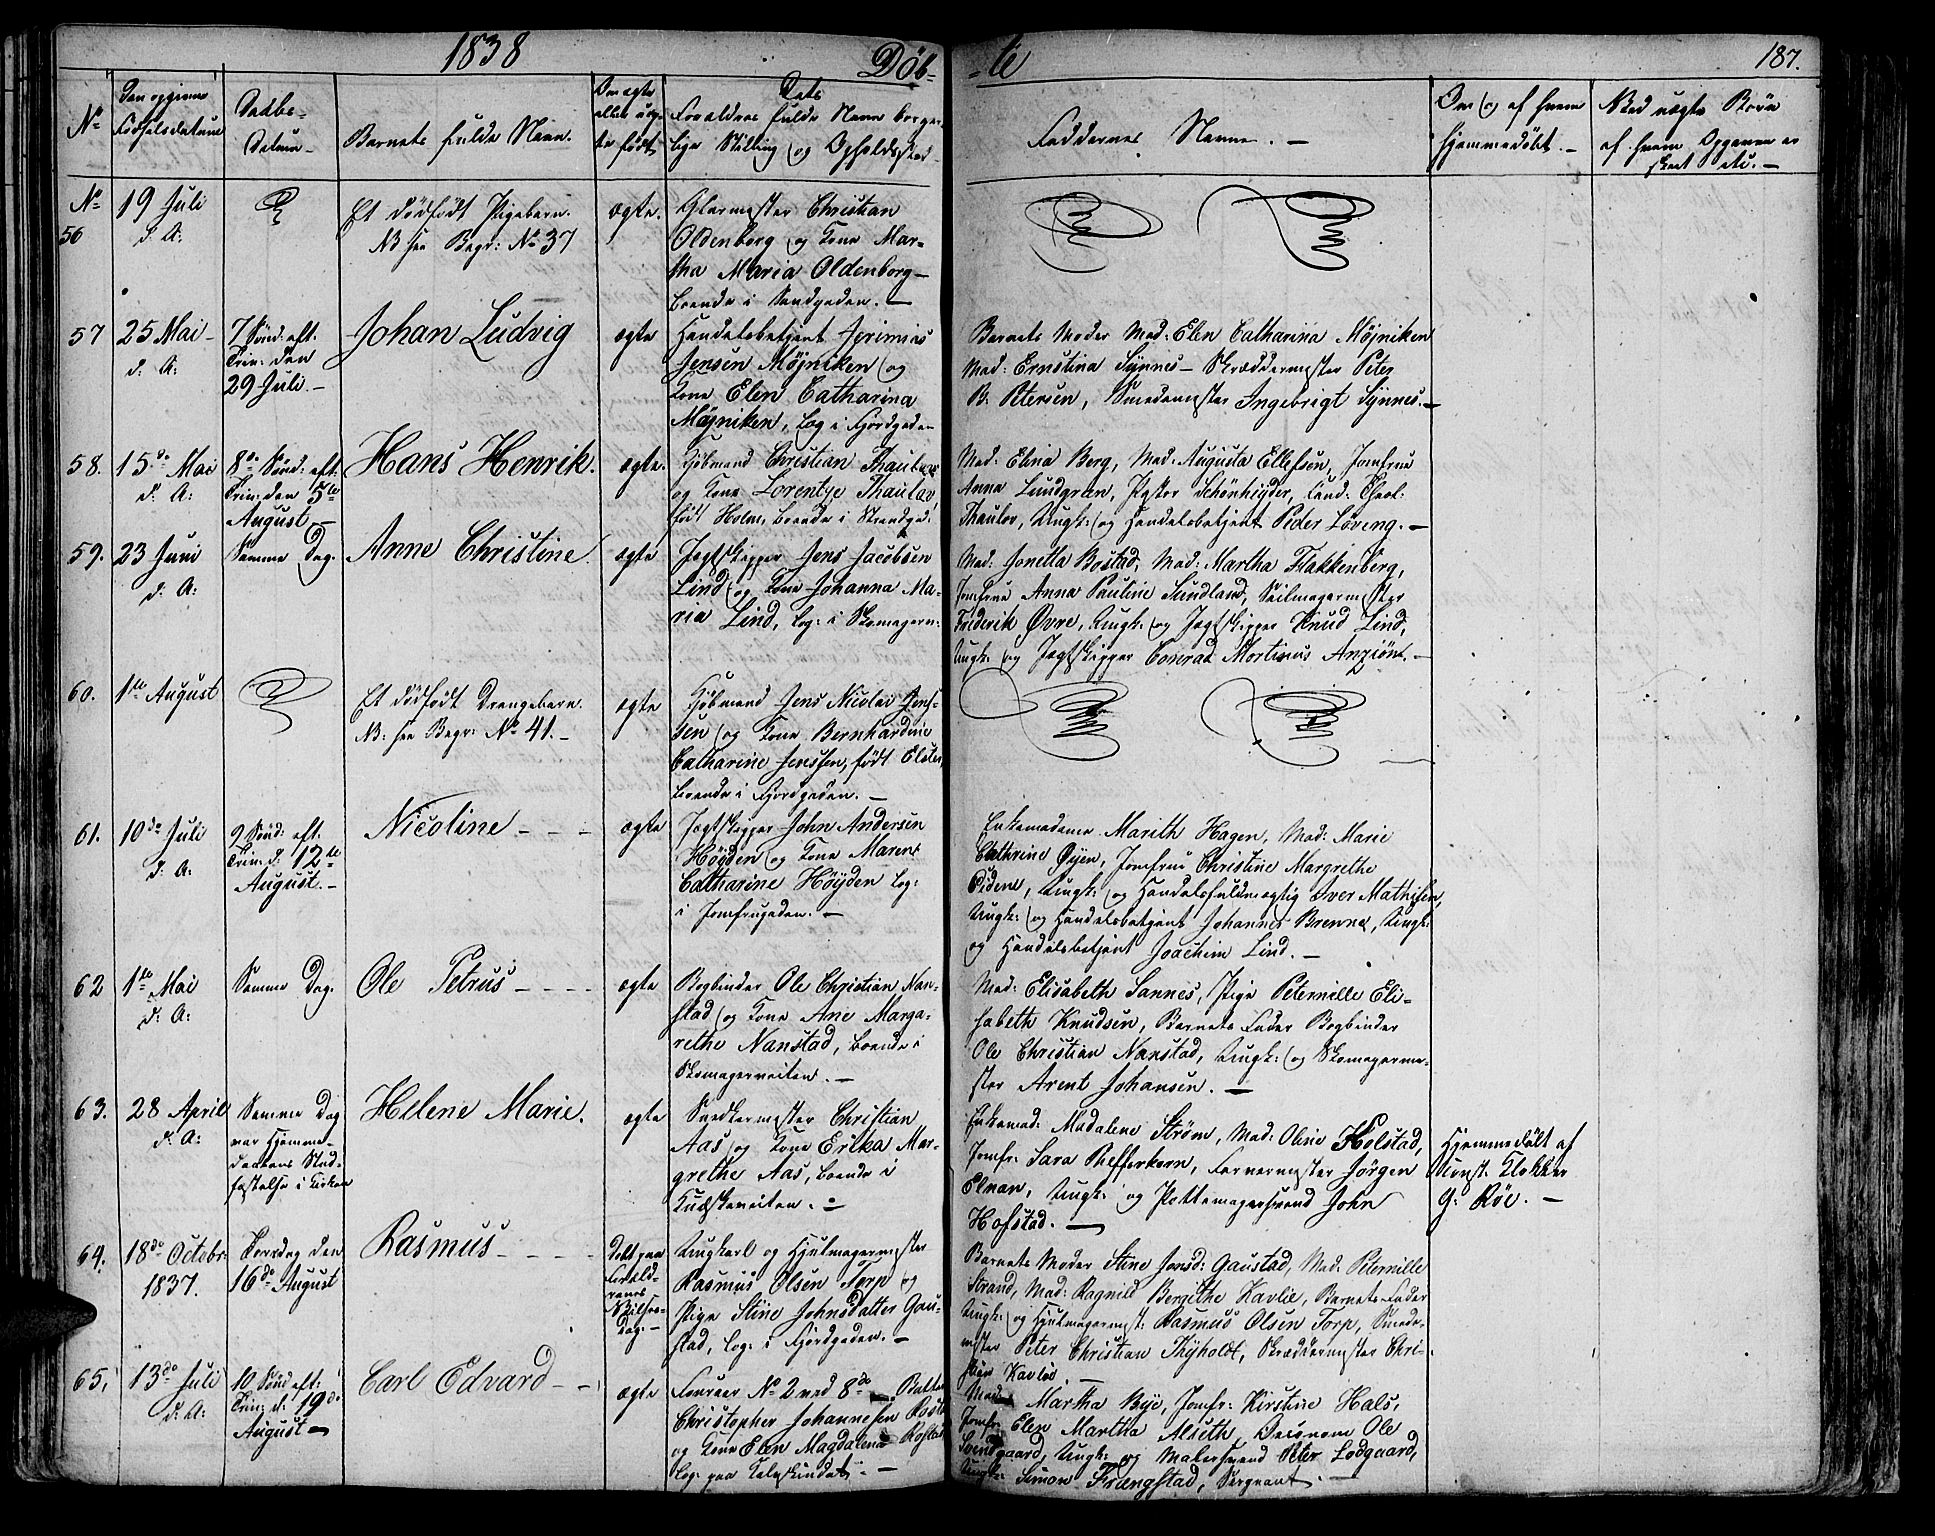 1838 Döb-
-te 187.
No
Den opgivne
Födselsdatum
Daabs-
Datum
Barnets fulde Navn.
Om ægte
eller uæg-
te födt
Dets
Forældres fulde Navn borger-
lige Stilling og Opholdssted
Faddernes Navne. —
Om og af hvem
hjemmedöbt. —
Ved uægte Börn
af hvem Opgaven er
skeet etc. —
No
56
19 Juli
d. A:
Et dödfödt Pigebarn.
NB see Begr: No 37
ægte.
Glarmester Christian
Oldenborg og Kone Mar-
tha Maria Oldenborg —
boende i Sandgaden. —
57
25 Mai
d. A:
7 Sönd. eft.
Trin: den
29 Juli. —
Johan Ludvig
ægte
Handelsbetjent
Jensen Möjniken og
Kone Elen Catharina
Möjniken, log i Fjordgaden
Barnets Moder Mad: Elen Catharina Möjniken
Mad: Ernstina Synnes — Skræddermester Peter
B. Petersen, Smedemester Ingebrigt Synnes. —
58.
15de Mai
d. A:
8de Sönd: eft.
Trin: den 5te
August —
Hans Henrik.
ægte.
Kjöbmand Christian Thaulov
og Kone Lorentze Thaulov
födt Holm, boende i Strandgd:
Mad: Elina Berg, Mad: Augusta Ellefsen, Jomfrue
Anna Lundgreen, Pastor Schönheyder, Cand: Theol:
Thaulov, Ungk: og Handelsbetjent Peder Löveng. —
59.
23 Juni
d. A:
Samme Dag.
Anne Christine
ægte
Jagtskipper Jens Jacobsen
Lind og Kone Johanna Ma-
ria Lind, log: i Skomagerv:
Mad: Jonetta Bostad, Mad: Martha Flakkenberg,
Jomfrue Anna Pauline Sundland, Seilmagermester
Friderik Øvre, Ungk: og Jagtskipper Knud Lind,
Ungk: og Jagtskipper Conrad Mortinus Anzion. —
60.
1te August
Et dödfödt Drengebarn.
NB: see Begr: No 41. —
ægte
Kjöbmand Jens Nicolai Jens-
sen og Kone Bernhardine
Catharine Jenssen, födt Elster,
boende i Fjordgaden. —
61.
10de Juli
d. A:
9 Sönd: eft.
Trin: d: 12te
August. —
Nicoline - - -
ægte
Jagtskipper John Andersen
Höyden og Kone Maren
Catharine Höyden log:
i Jomfrugaden. —
Enkemadame Marith Hagen, Mad: Marie
Cathrine Öyen, Jomfrue Christine Margrethe
Eidene, Ungk: og Handelsfuldmægtig Iver Mathisen,
Ungk: og Handelsbetjent Johannes Brenne, Ungk:
og Handelsbetjent Joachim Lind. —
62
1te Mai
d. A:
Samme Dag.
Ole Petrus - - - -
ægte
Bogbinder Ole Christian Nan-
stad og Kone Ane Marga-
rethe Nanstad, boende i
Skomagerveiten. —
Mad: Elisabeth Sannes, Pige Peternille Eli-
sabeth Knudsen, Barnets Fader Bogbinder
Ole Christian Nanstad, Ungk: og Skomagerme-
ster Arent Johansen. —
63.
28 April
d. A:
Samme Dag
var Hjemme-
daabens Stad-
fæstelse i Kirken
Helene Marie.
ægte
Snedkermester Christian
Aas og Kone Erika Mar-
grethe Aas, boende i
Kudskeveiten. —
Enkemad: Madalene Ström, Mad: Oline Holstad,
Jomfr: Sara Pefferkorn, Farvermester Jörgen
Elnan, Ungk: og Pottemagersvend John
Hofstad. —
Hjemmedöbt af
Const. Klokker
G: Röe. —
64.
18de Octobr:
1837.
Torsdag den
16de August
Rasmus - - - -
Döbt paa
Foræld-
renes
Bilfæ-
Dag: —
Ungkarl og Hjulmagermester
Rasmus Olsen Torp og
Pige Stine Johnsdatter Gau-
stad, log: i Fjordgaden. —
Barnets Moder Stine Jonsd: Gaustad, Mad: Peternille
Strand, Mad: Ragnild Bergithe Kavlie, Barnets Fader
Ungk: og Hjulmagermst: Rasmus Olsen Torp, Smede-
mester Peter Christian Thyholdt, Skræddermester Chri-
stian Kavlie. —
65,
13de Juli
d: A:
10 Sönd eft:
Trin: d. 19de
August —
Carl Edvard - -
ægte
Foureer No 2 ved 8de Batt:
Christopher Johannesen
og Kone Elen Magdalena
log: paa Kalvskindet. —
Mad: Martha Bye, Jomfr: Kirstine Hals,
Jomfr: Elen Martha Alseth, Oeconom Ole
Svendgaard, Ungk: og Malersvend Peter Lodgaard,
Ungk: Simon Frængstad, Sergeant. —